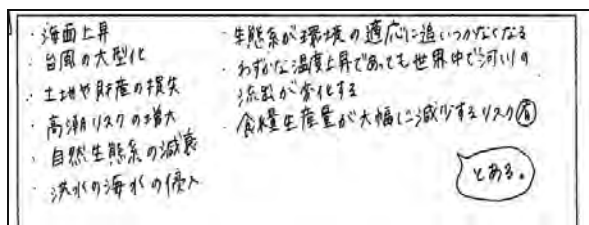 ・海面上昇
・台風の大型化
・土地や財産の損失
・高潮リスクの増大
・自然生態系の減衰
・洪水の海水の侵入
・生態系が環境の適応に追いつかなくなる
・わずかな温度上昇であっても世界中で河川の
流出が変化する
・食糧生産量が大幅に減少するリスク有
とある。